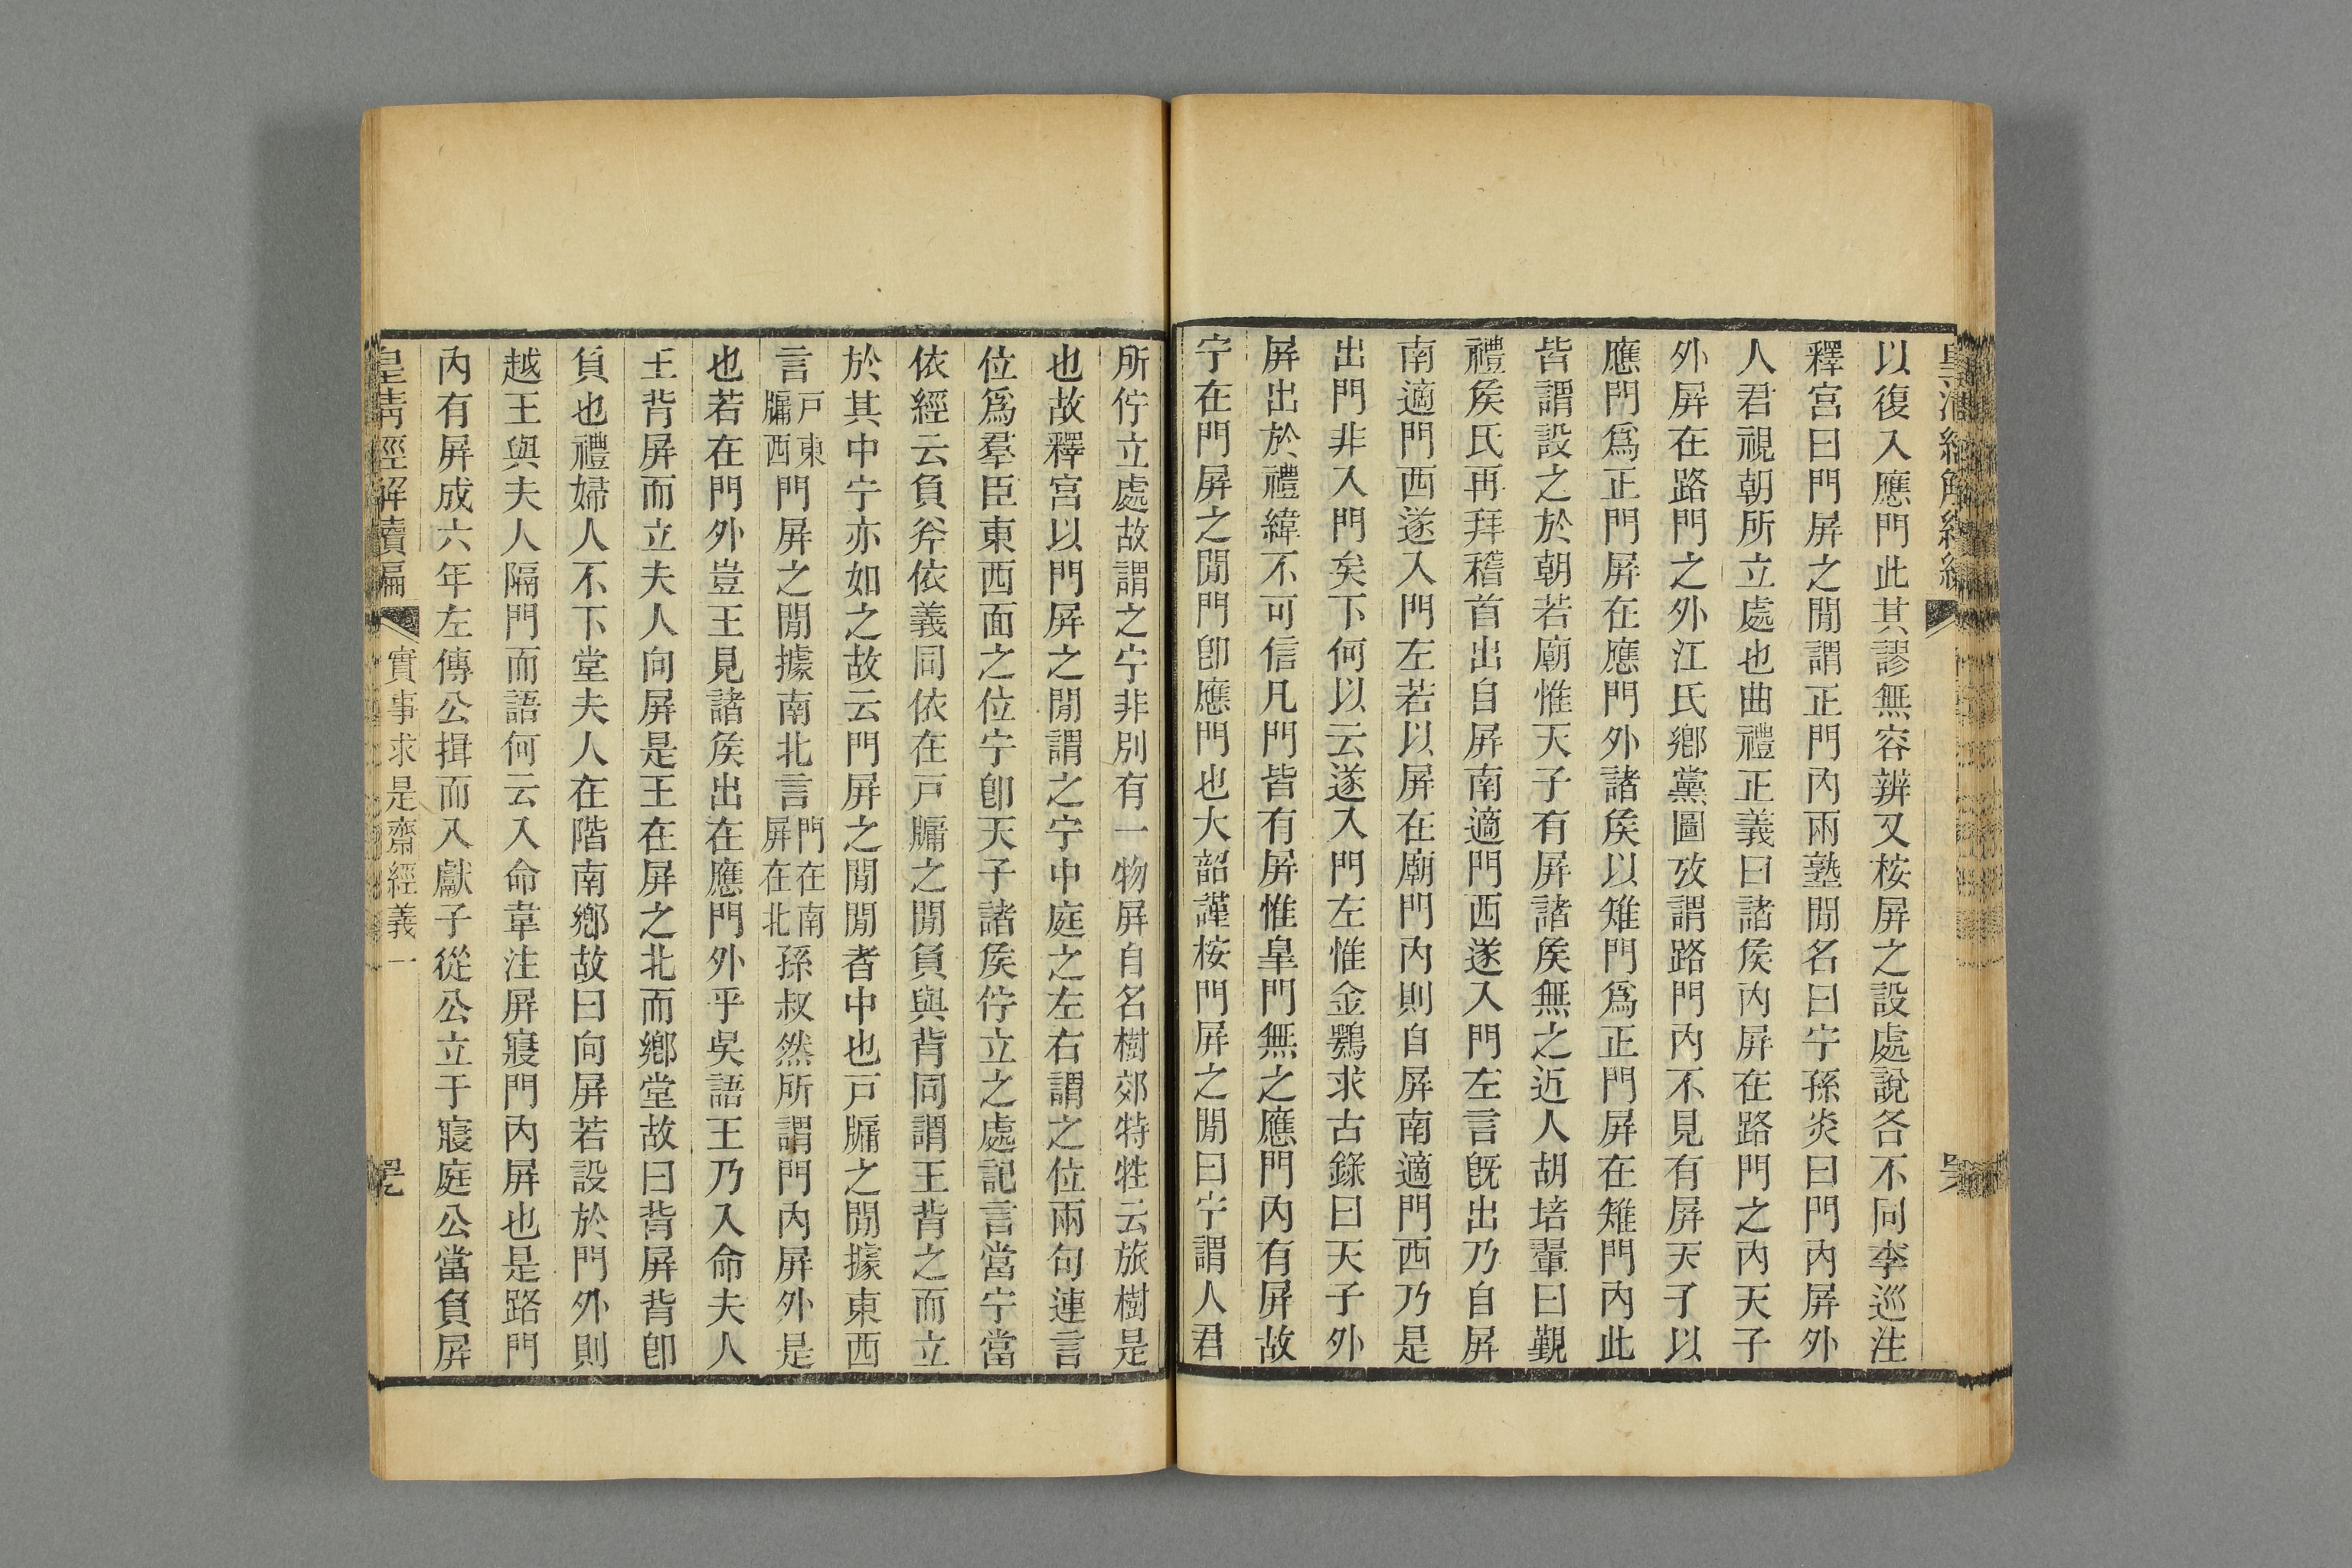 以復入應門此其謬無容辨又桉屏之設處說各不同李巡注
釋宮曰門屏之閒謂正門內兩塾閒名曰宁孫炎曰門內屏外
人君視朝所立處也曲禮正義曰諸矦內屏在路門之內天子
外屏在路門之外江氏鄉黨圖攷謂路門內不見有屏天子以
應門爲正門屏在應門外諸矦以雉門爲正門屏在雉門內此
皆謂設之於朝若廟惟天子有屏諸矦無之近人胡培翬曰覲
禮矦氏再拜稽首出自屏南適門西遂入門左言旣出乃自屏
南適門西遂入門左若以屏在廟門內則自屏南適門西乃是
出門非入門矣下何以云遂入門左惟金鶚求古錄曰天子外
屏出於禮緯不可信凡門皆有屏惟皐門無之應門內有屏故
宁在門屏之閒門卽應門也大韶謹桉門屏之閒曰宁謂人君
所佇立處故謂之宁非別有一物屏自名樹郊特牲云旅樹是
也故釋宮以門屏之閒謂之宁中庭之左右謂之位兩句連言
位爲羣臣東西面之位宁卽天子諸矦佇立之處記言當宁當
依經云負斧依義同依在戸牖之閒負與背同謂王背之而立
於其中宁亦如之故云門屏之閒閒者中也戸牖之閒據東西
言戸東牖西門屏之閒據南北言門在南屏在北孫叔然所謂門內屏外是
也若在門外豈王見諸矦出在應門外乎吳語王乃入命夫人
王背屏而立夫人向屏是王在屏之北而鄉堂故曰背屏背卽
負也禮婦人不下堂夫人在階南鄉故曰向屏若設於門外則
越王與夫人隔門而語何云入命韋注屏寢門內屏也是路門
內有屏成六年左傳公揖而入獻子從公立于寢庭公當負屏
皇清經解續編 實事求是齋經義一